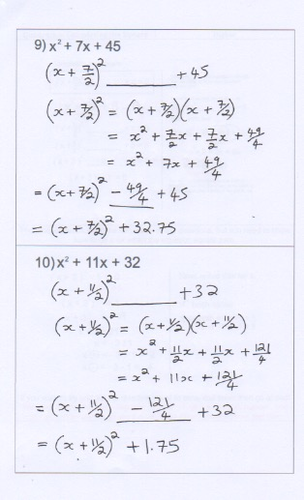 9) x² + 7x + 45
(x + 7/2)² ______ + 45
(x + 7/2)² = (x + 7/2)(x + 7/2)
= x² + 7/2x + 7/2x + 49/4
= x² + 7x + 49/4
= (x + 7/2)² - 49/4 + 45
= (x + 7/2)² + 32.75
10) x² + 11x + 32
(x + 11/2)² ______ + 32
(x + 11/2)² = (x + 11/2)(x + 11/2)
= x² + 11/2x + 11/2x + 121/4
= x² + 11x + 121/4
= (x + 11/2)² - 121/4 + 32
= (x + 11/2)² + 1.75